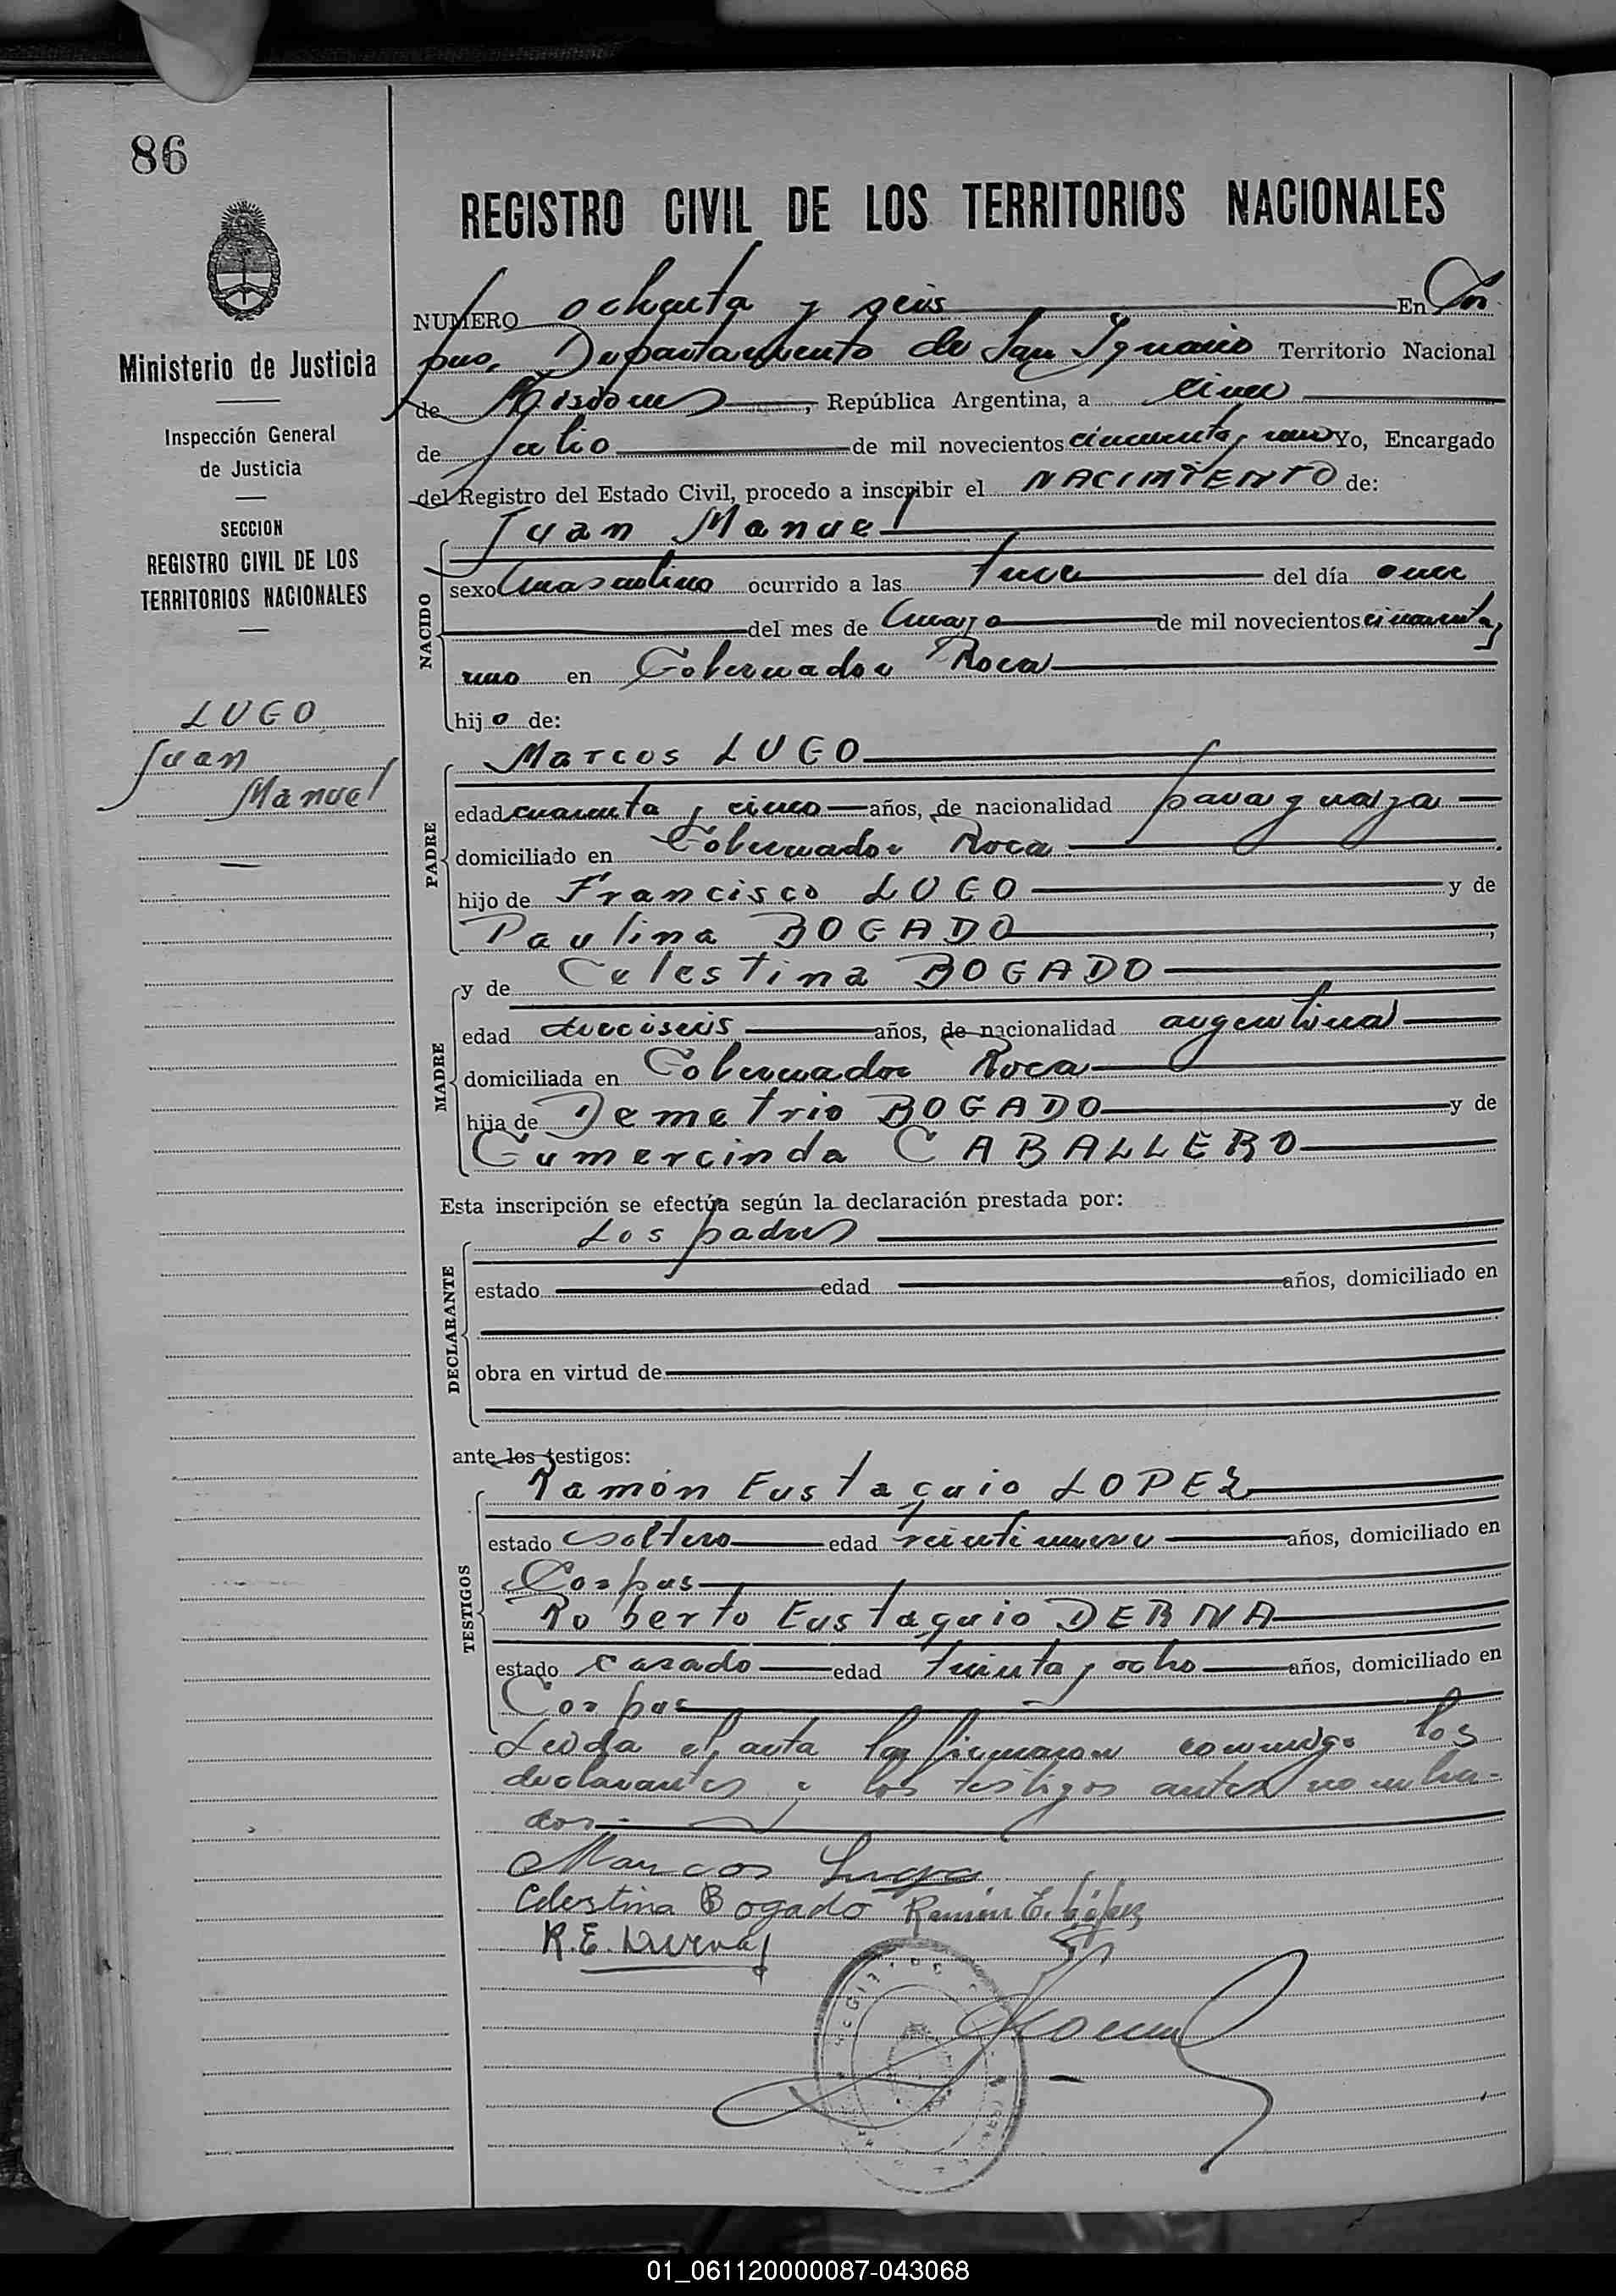 86
REGISTRO CIVIL DE LOS TERRITORIOS NACIONALES
Ministerio de Justicia
Inspección General
de Justicia
SECCION
REGISTRO CIVIL DE LOS
TERRITORIOS NACIONALES
LUGO
Juan
Manuel
NUMERO ochenta y seis En Cor
pus, Departamento de San Ignacio Territorio Nacional
de Misiones, República Argentina, a cinco
de Julio de mil novecientos cincuenta y uno Yo, Encargado
del Registro del Estado Civil, procedo a inscribir el NACIMIENTO de:
Juan Manuel
NACIDO
sexo masculino ocurrido a las trece del día once
del mes de mayo de mil novecientos cincuenta y
uno en Gobernador Roca
hijo de:
Marcos LUGO
PADRE
edad cuarenta y cinco años, de nacionalidad paraguaya
domiciliado en Gobernador Roca
hijo de Francisco LUGO y de
Paulina BOGADO,
y de Celestina BOGADO
MADRE
edad dieciseis años, de nacionalidad argentina
domiciliada en Gobernador Roca
hija de Demetrio BOGADO y de
Gumercinda CABALLERO
Esta inscripción se efectúa según la declaración prestada por:
Los padres
DECLARANTE
estado edad años, domiciliado en
obra en virtud de
ante los testigos:
Ramón Eustaquio LOPEZ
TESTIGOS
estado soltero edad veintinueve años, domiciliado en
Corpus
Roberto Eustaquio DERNA
estado casado edad treinta y ocho años, domiciliado en
Corpus
Leida el acta la firmaron conmigo los
declarantes y los testigos antes nombra-
dos.-
Marcos Lugo
Celestina Bogado Ramón E. López
R.E. Derna
01_061120000087-043068